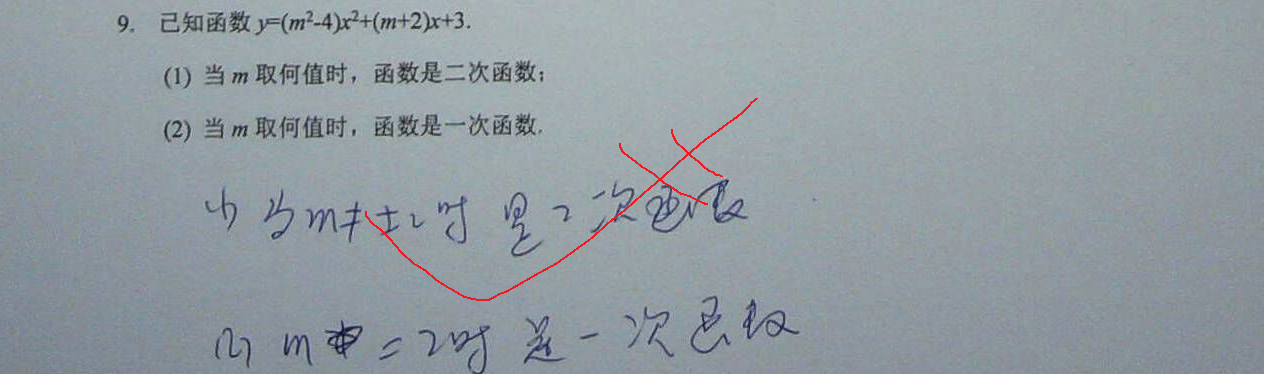 9. 已知函数 y=(m²-4)x²+(m+2)x+3.
(1) 当 m 取何值时，函数是二次函数；
(2) 当 m 取何值时，函数是一次函数.
(1) 当m≠±2时 是二次函数
(2) m=2时 是一次函数